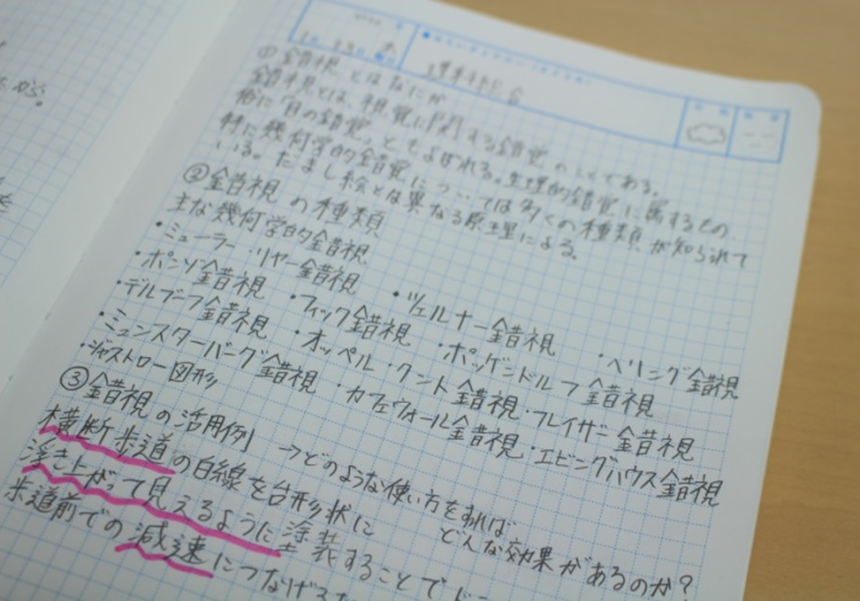 ①錯視とはなにか
錯視とは、視覚に関する錯覚のことである。
俗に「目の錯覚」ともよばれる。生理的錯覚に属するもの
特に幾何学的錯覚については多くの種類が知られて
いる。だまし絵とは異なる原理による。
②錯視の種類
主な幾何学的錯視
・ミューラー・リヤー錯視 ・ツェルナー錯視 ・ヘリング錯視
・ポンゾ錯視 ・フィック錯視 ・ポッゲンドルフ錯視
・デルブーフ錯視 ・オッペル・クント錯視 ・フレイザー錯視
・ミュンスターバーグ錯視 ・カフェウォール錯視 ・エビングハウス錯視
・ジャストロー図形
③錯視の活用例 →どのような使い方をすれば
どんな効果があるのか?
横断歩道の白線を台形状に
浮き上がって見えるように塗装することで
歩道前での減速につなげる